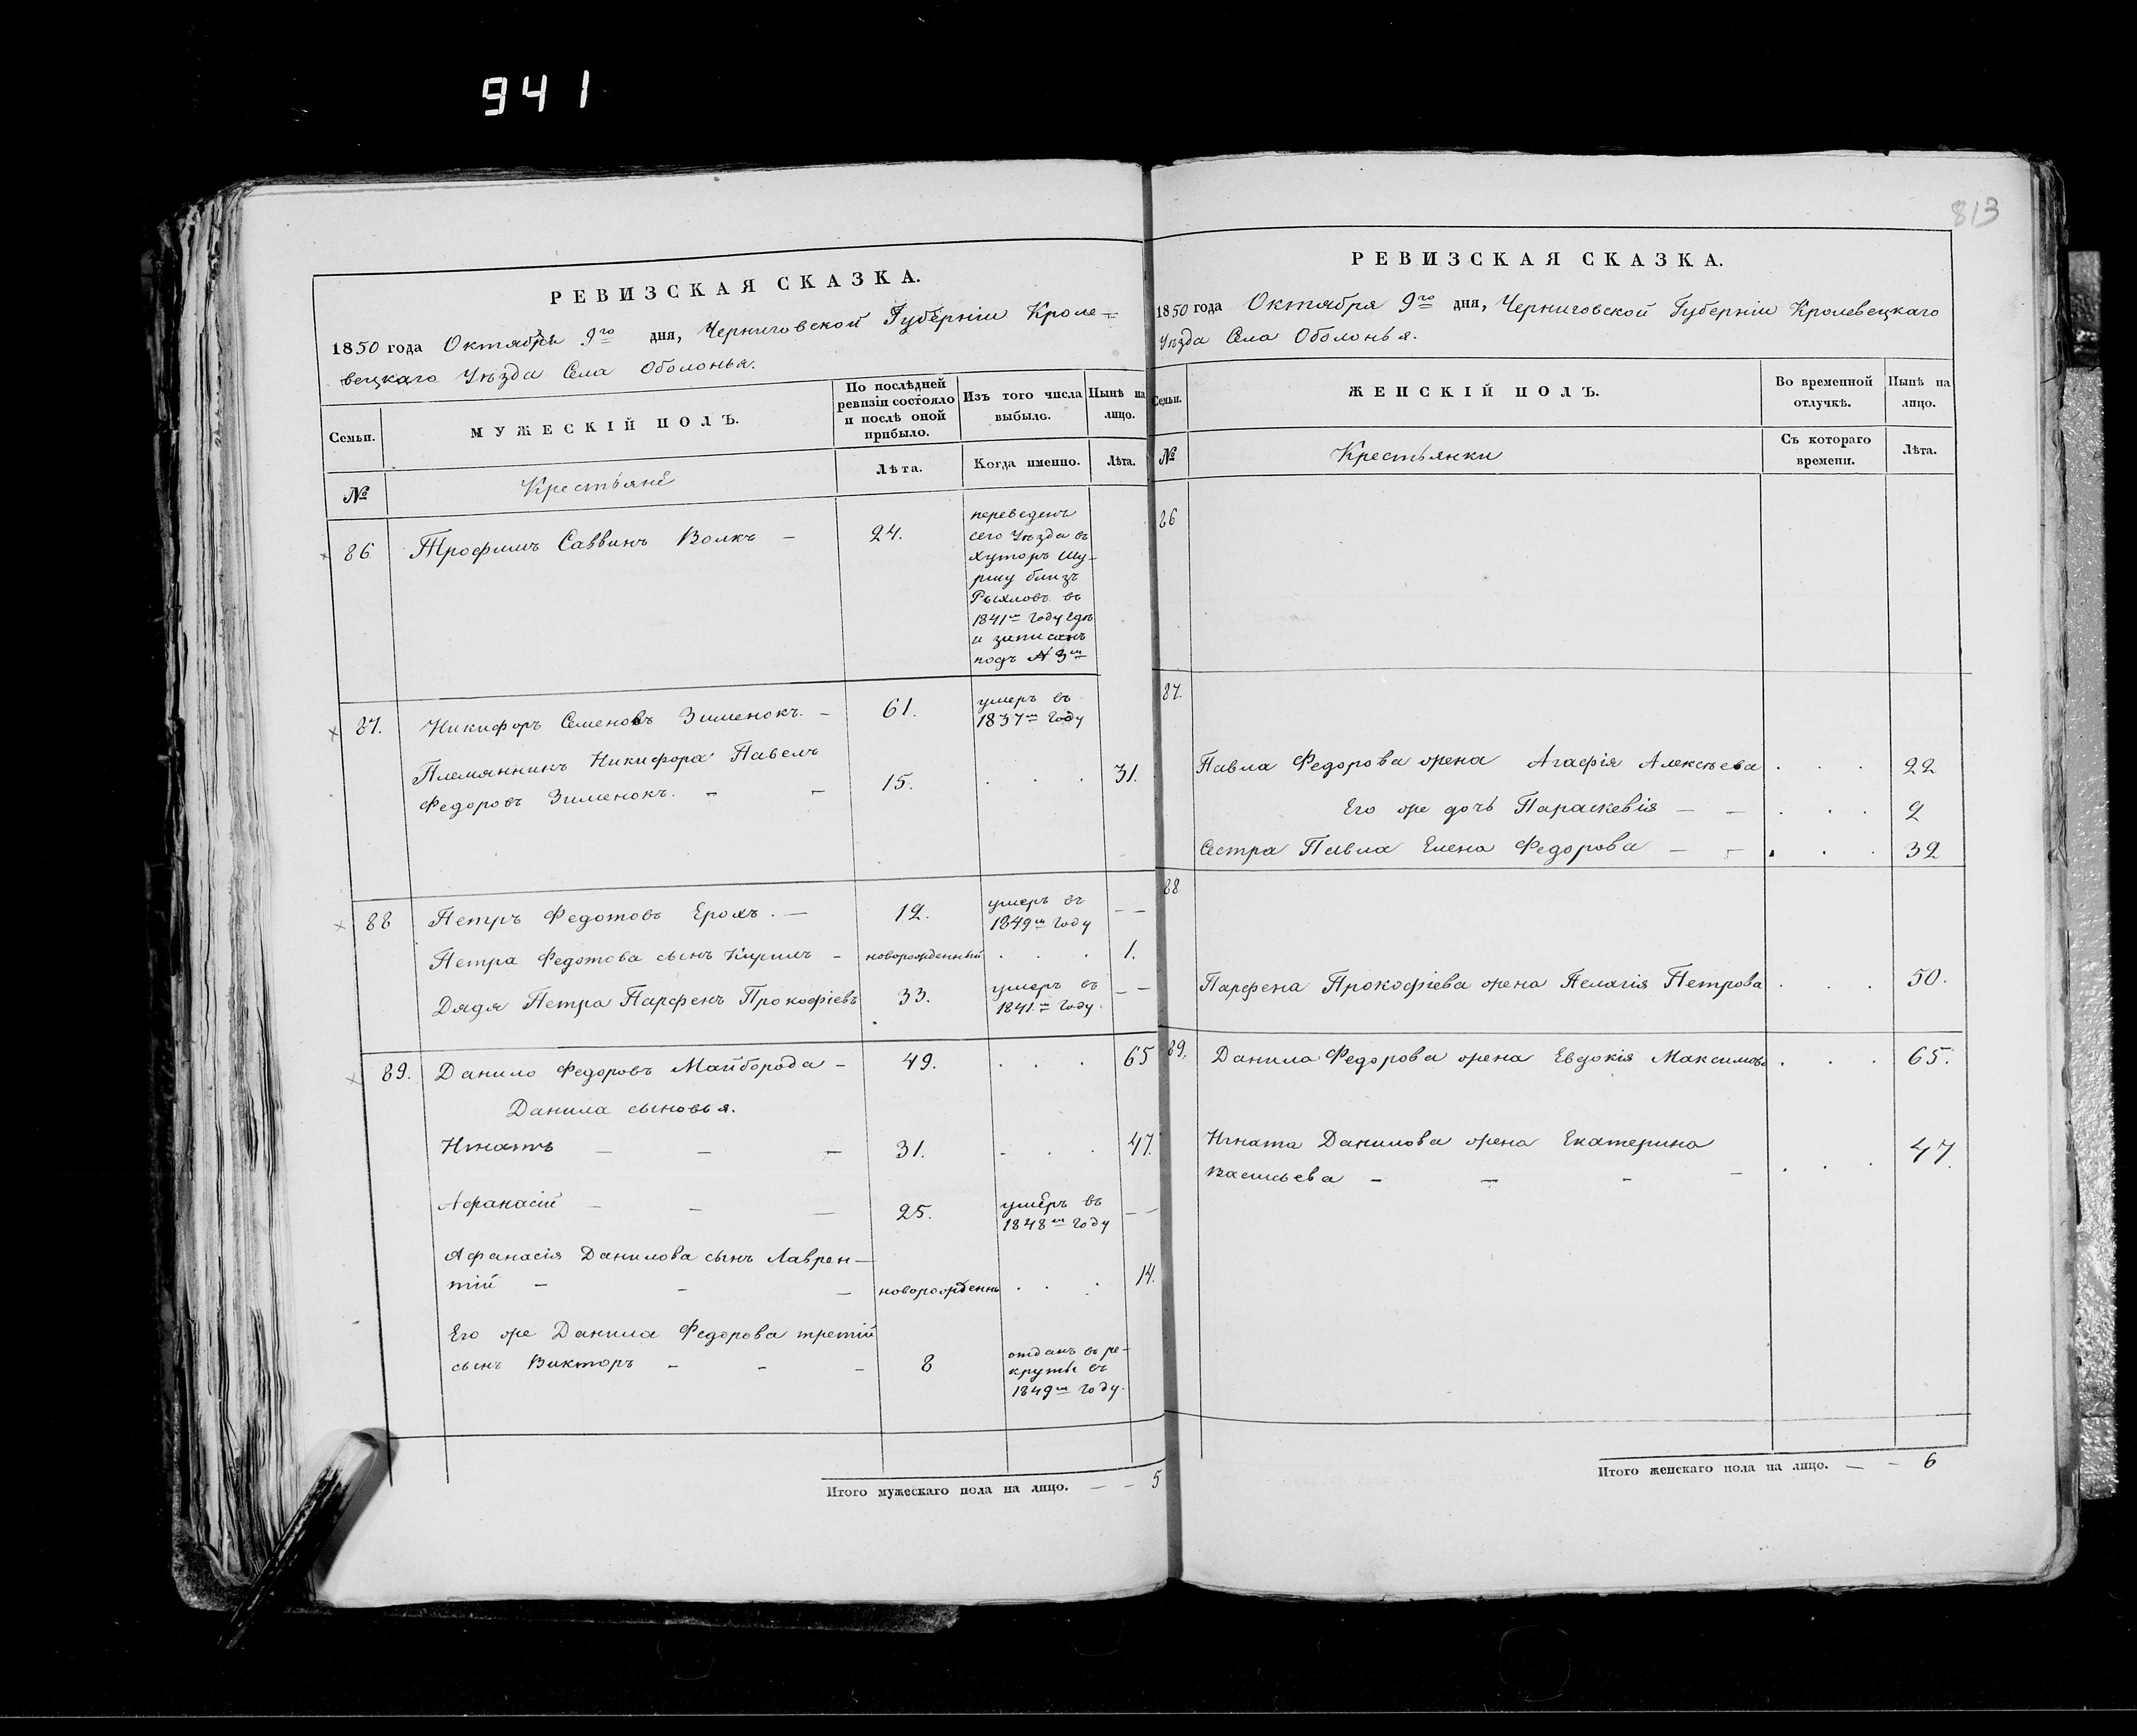 941
РЕВИЗСКАЯ СКАЗКА.
1850 года Октября 9го дня, Черниговской Губерніи Кроле=
вецкаго Уѣзда Села Оболонья.
Семьи.
МУЖЕСКІЙ ПОЛЪ.
По послѣдней
ревизіи состояло
и послѣ оной
прибыло.
Изъ того числа
выбыло.
Нынѣ на
лицо.
№
Крестьяне
Лѣта.
Когда именно.
Лѣта.
86 Трофимъ Саввинъ Волкъ – 24.
переведенъ
сего Уѣзда въ
Хуторъ
близъ
Рыхловъ въ
1841м году гдѣ
и записанъ
подъ № 3м
87. Никифоръ Семеновъ Зименокъ. – 61. умеръ въ
1837м году
Племянникъ Никифора Павелъ
Федоровъ Зименокъ. – – 15. . . . 31.
88 Петръ Федотовъ Ерохъ. – 12. умеръ въ
1849м году – –
Петра Федотова сынъ Кирилъ – новорожденный . . . 1.
Дядя Петра Парфенъ Прокофіевъ 33. умеръ въ
1841м году. – –
89. Данило Федоровъ Майборода – 49. . . . 65
Данила сыновья.
Игнатъ – – – 31. . . . 47.
Афанасій – – – 25. умеръ въ
1848м году – –
Афанасія Данилова сынъ Лаврен–
тій – – – новорожденны . . . 14.
Его же Данила Федорова третій
сынъ Викторъ – – – 8 отданъ въ ре–
круты въ
1849м году.
Итого мужескаго пола на лицо. – – 5
813
РЕВИЗСКАЯ СКАЗКА.
1850 года Октября 9го дня, Черниговской Губерніи Кролевецкаго
Уѣзда Села Оболонья.
Семьи.
ЖЕНСКІЙ ПОЛЪ.
Во временной
отлучкѣ.
Нынѣ на
лицо.
№
Крестьянки
Съ котораго
времени.
Лѣта.
86
87.
Павла Федорова жена Агафія Алексѣева . . . 22
Его же дочь Параскевія – – . . . 2
Сестра Павла Елена Федорова – – . . . 32
88
Парфена Прокофіева жена Пелагія Петрова . . . 50.
89. Данила Федорова жена Евдокія Максимова . . . 65.
Игната Данилова жена Екатерина
Васильева – – – – . . . 47.
Итого женскаго пола на лицо. – – 6